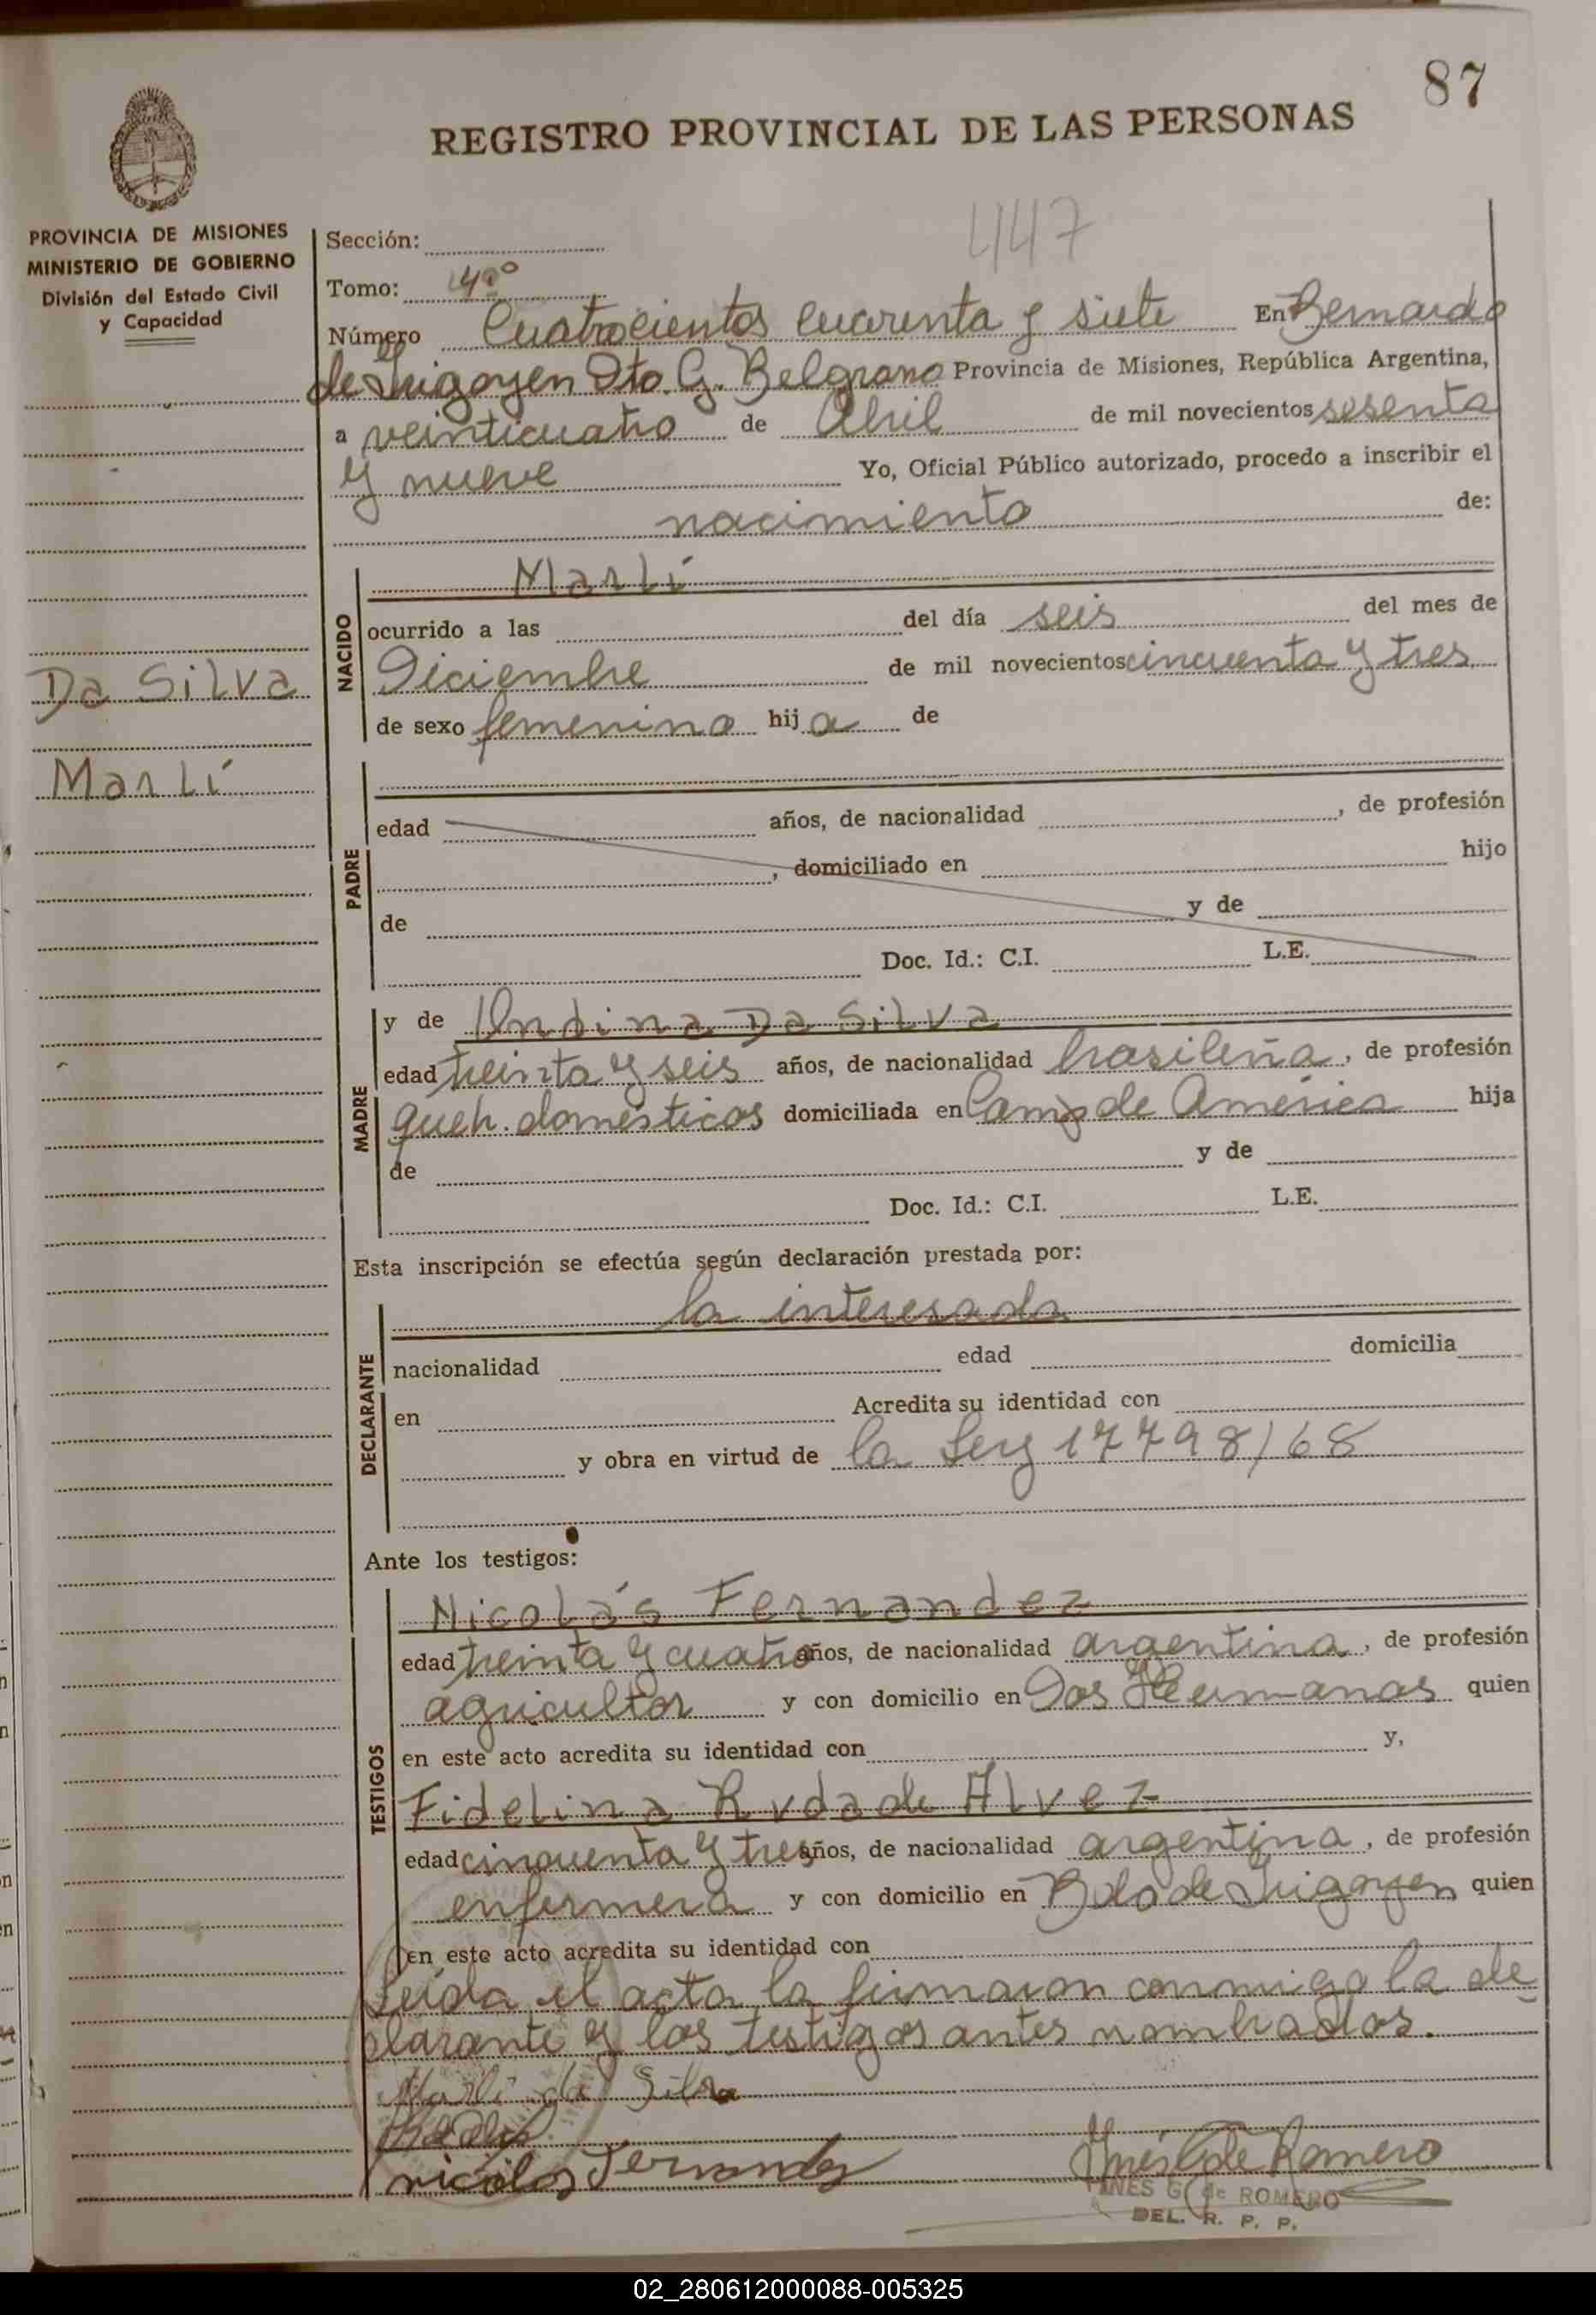 87
REGISTRO PROVINCIAL DE LAS PERSONAS
PROVINCIA DE MISIONES
MINISTERIO DE GOBIERNO
División del Estado Civil
y Capacidad
447
Sección:
Tomo: 4º
Número Cuatrocientos cuarenta y siete En Bernardo
de Irigoyen Dto. G. Belgrano Provincia de Misiones, República Argentina,
a veinticuatro de Abril de mil novecientos sesenta
y nueve Yo, Oficial Público autorizado, procedo a inscribir el
nacimiento de:
Da Silva
Marlí
NACIDO
Marlí
ocurrido a las del día seis del mes de
Diciembre de mil novecientos cincuenta y tres
de sexo femenino hija de
PADRE
edad años, de nacionalidad , de profesión
, domiciliado en hijo
de y de
Doc. Id.: C.I. L.E.
MADRE
y de Undina Da Silva
edad treinta y seis años, de nacionalidad brasileña, de profesión
queh. domésticos domiciliada en Campo de América hija
de y de
Doc. Id.: C.I. L.E.
Esta inscripción se efectúa según declaración prestada por:
DECLARANTE
la interesada
nacionalidad edad domicilia
en Acredita su identidad con
y obra en virtud de la Ley 17798/68
Ante los testigos:
TESTIGOS
Nicolás Fernandez
edad treinta y cuatro años, de nacionalidad argentina, de profesión
agricultor y con domicilio en Dos Hermanas quien
en este acto acredita su identidad con y,
Fidelina Ruda de Alvez
edad cincuenta y tres años, de nacionalidad argentina, de profesión
enfermera y con domicilio en Bdo de Irigoyen quien
en este acto acredita su identidad con
Leída el acta la firmaron conmigo la de
clarante y los testigos antes nombrados.
Marli da Silva
nicolas Fernandez
Inés G de Romero
INES G. de ROMERO
DEL. R. P. P.
02_280612000088-005325